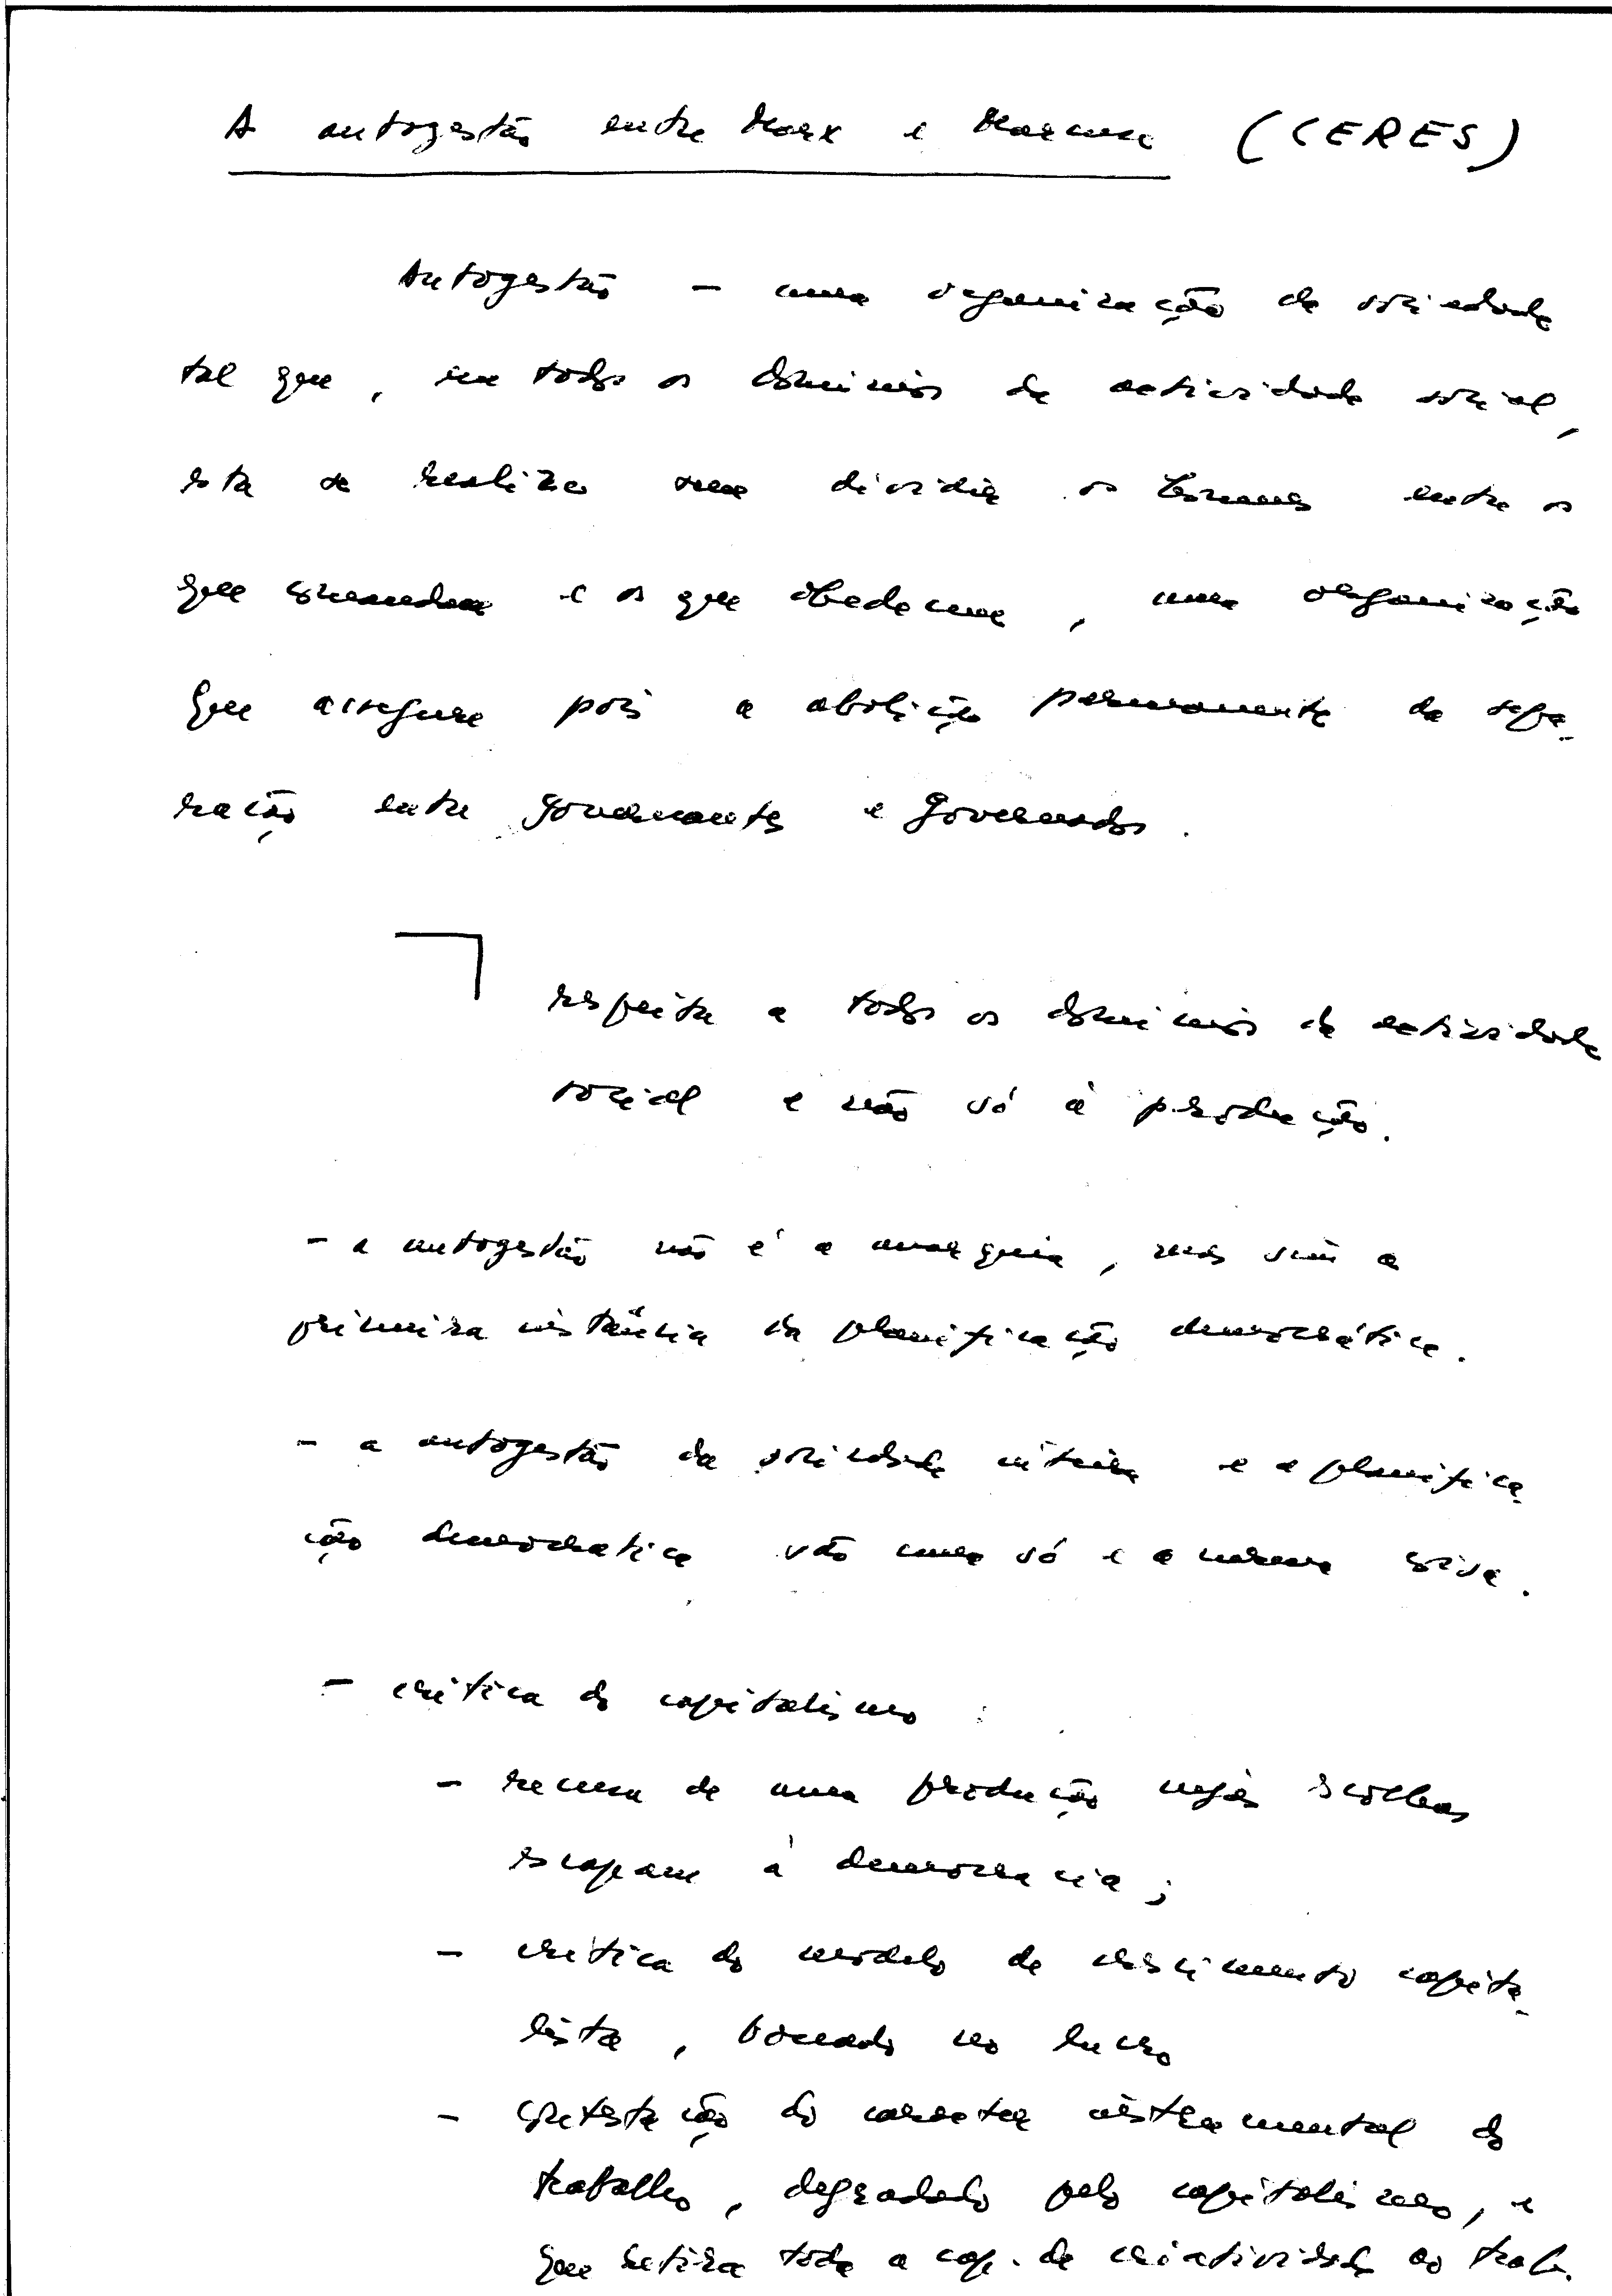 A autogestão entre Marx e Marcuse (CERES)
Autogestão – uma organização da sociedade
tal que, em todos os domínios da actividade social,
esta se realize sem dividir os homens entre os
que comandam e os que obedecem, uma organização
que assegure pois a abolição permanente da sepa-
ração entre governantes e governados.
respeita a todos os domínios da actividade
social e não só à produção.
– a autogestão não é a anarquia, mas sim a
primeira instância da planificação democrática.
– a autogestão da sociedade inteira e a planifica-
ção democratica são uma só e a mesma coisa.
– crítica do capitalismo:
– recusa de uma produção cujas escolhas
escapam à democracia;
– crítica do modelo de crescimento capita-
lista, baseado no lucro
– contestação do caracter instrumental do
trabalho, degradado pelo capitalismo, e
que retira toda a cap. de criatividade ao trab.